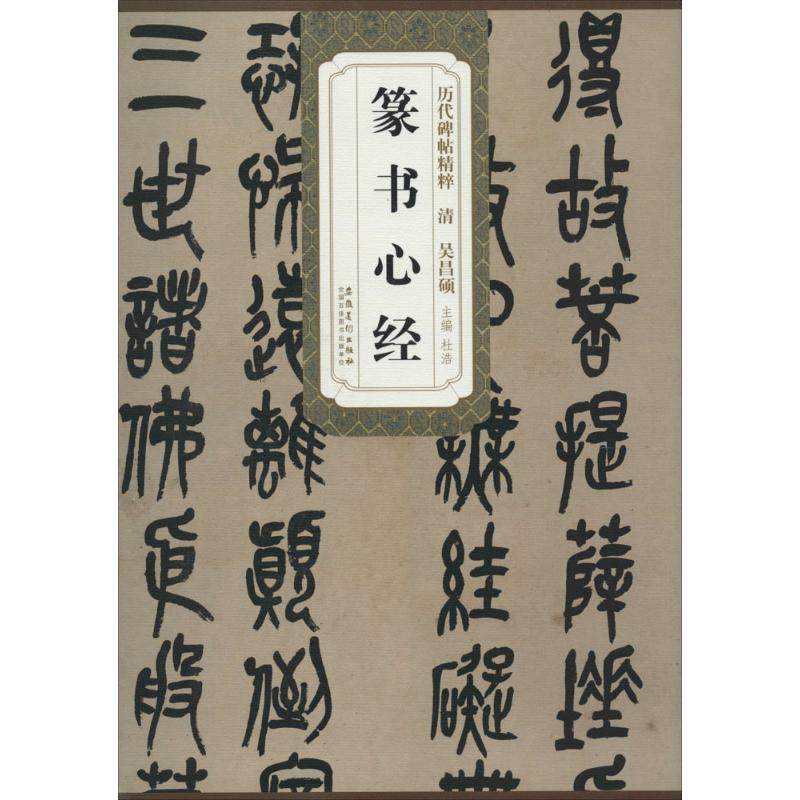 得故菩提薩埵
無絓礙
怖遠離顛倒
三世諸佛依般
历代碑帖精粹 清 吴昌硕
主编 杜浩
篆书心经
安徽美术出版社
全国百佳图书出版单位